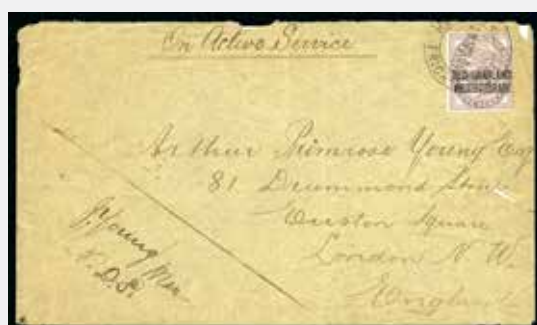 On Active Service
BECHUANALAND
PROTECTORATE
Arthur Primrose Young Esq
81 Drummond Street
Euston Square
London N. W.
England
J. Young